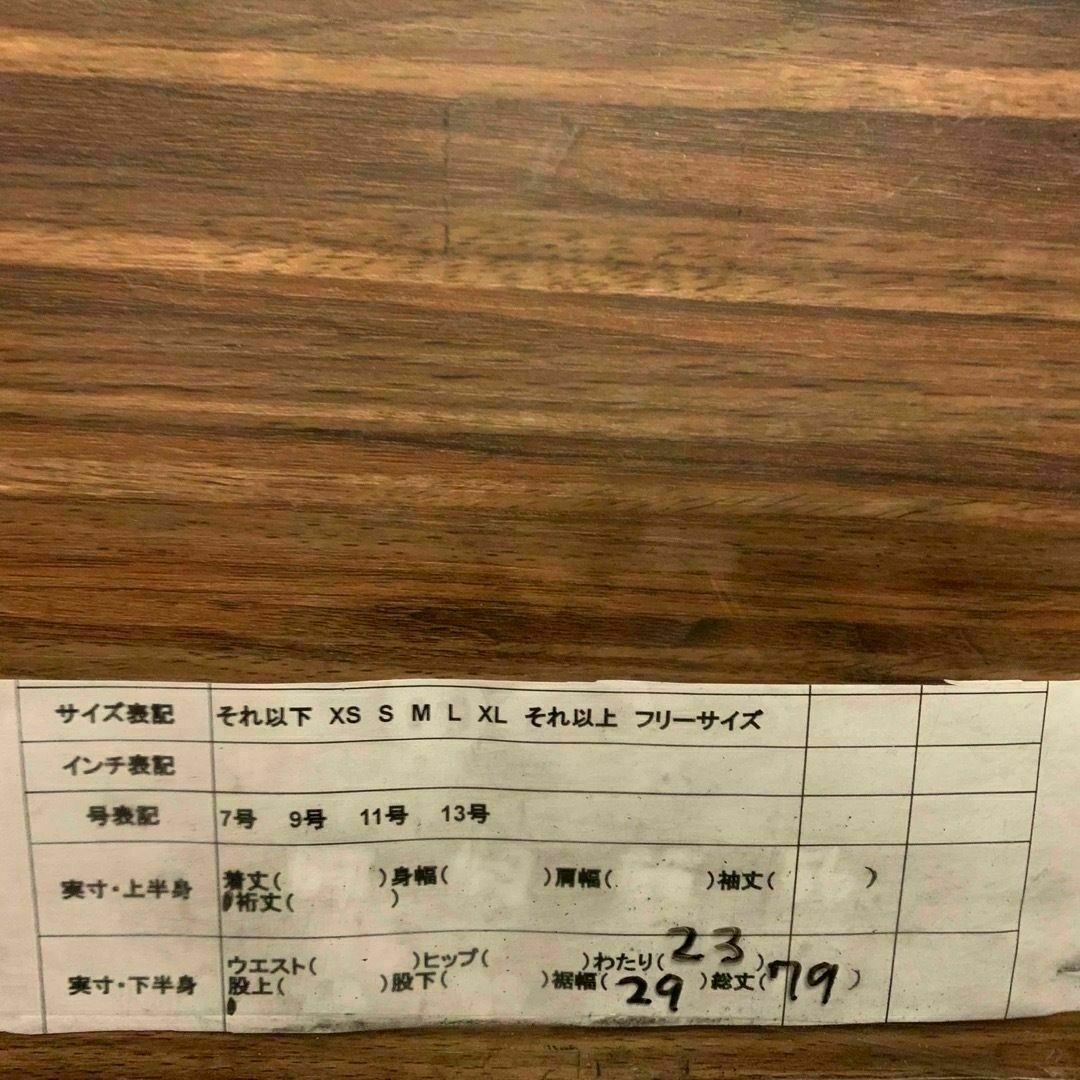 サイズ表記 それ以下 XS S M L XL それ以上 フリーサイズ
インチ表記
号表記 7号 9号 11号 13号
実寸・上半身 着丈( )身幅( )肩幅( )袖丈( )
裄丈( )
実寸・下半身 ウエスト( )ヒップ( )わたり( 23 )
股上( )股下( )裾幅( 29 )総丈( 79 )